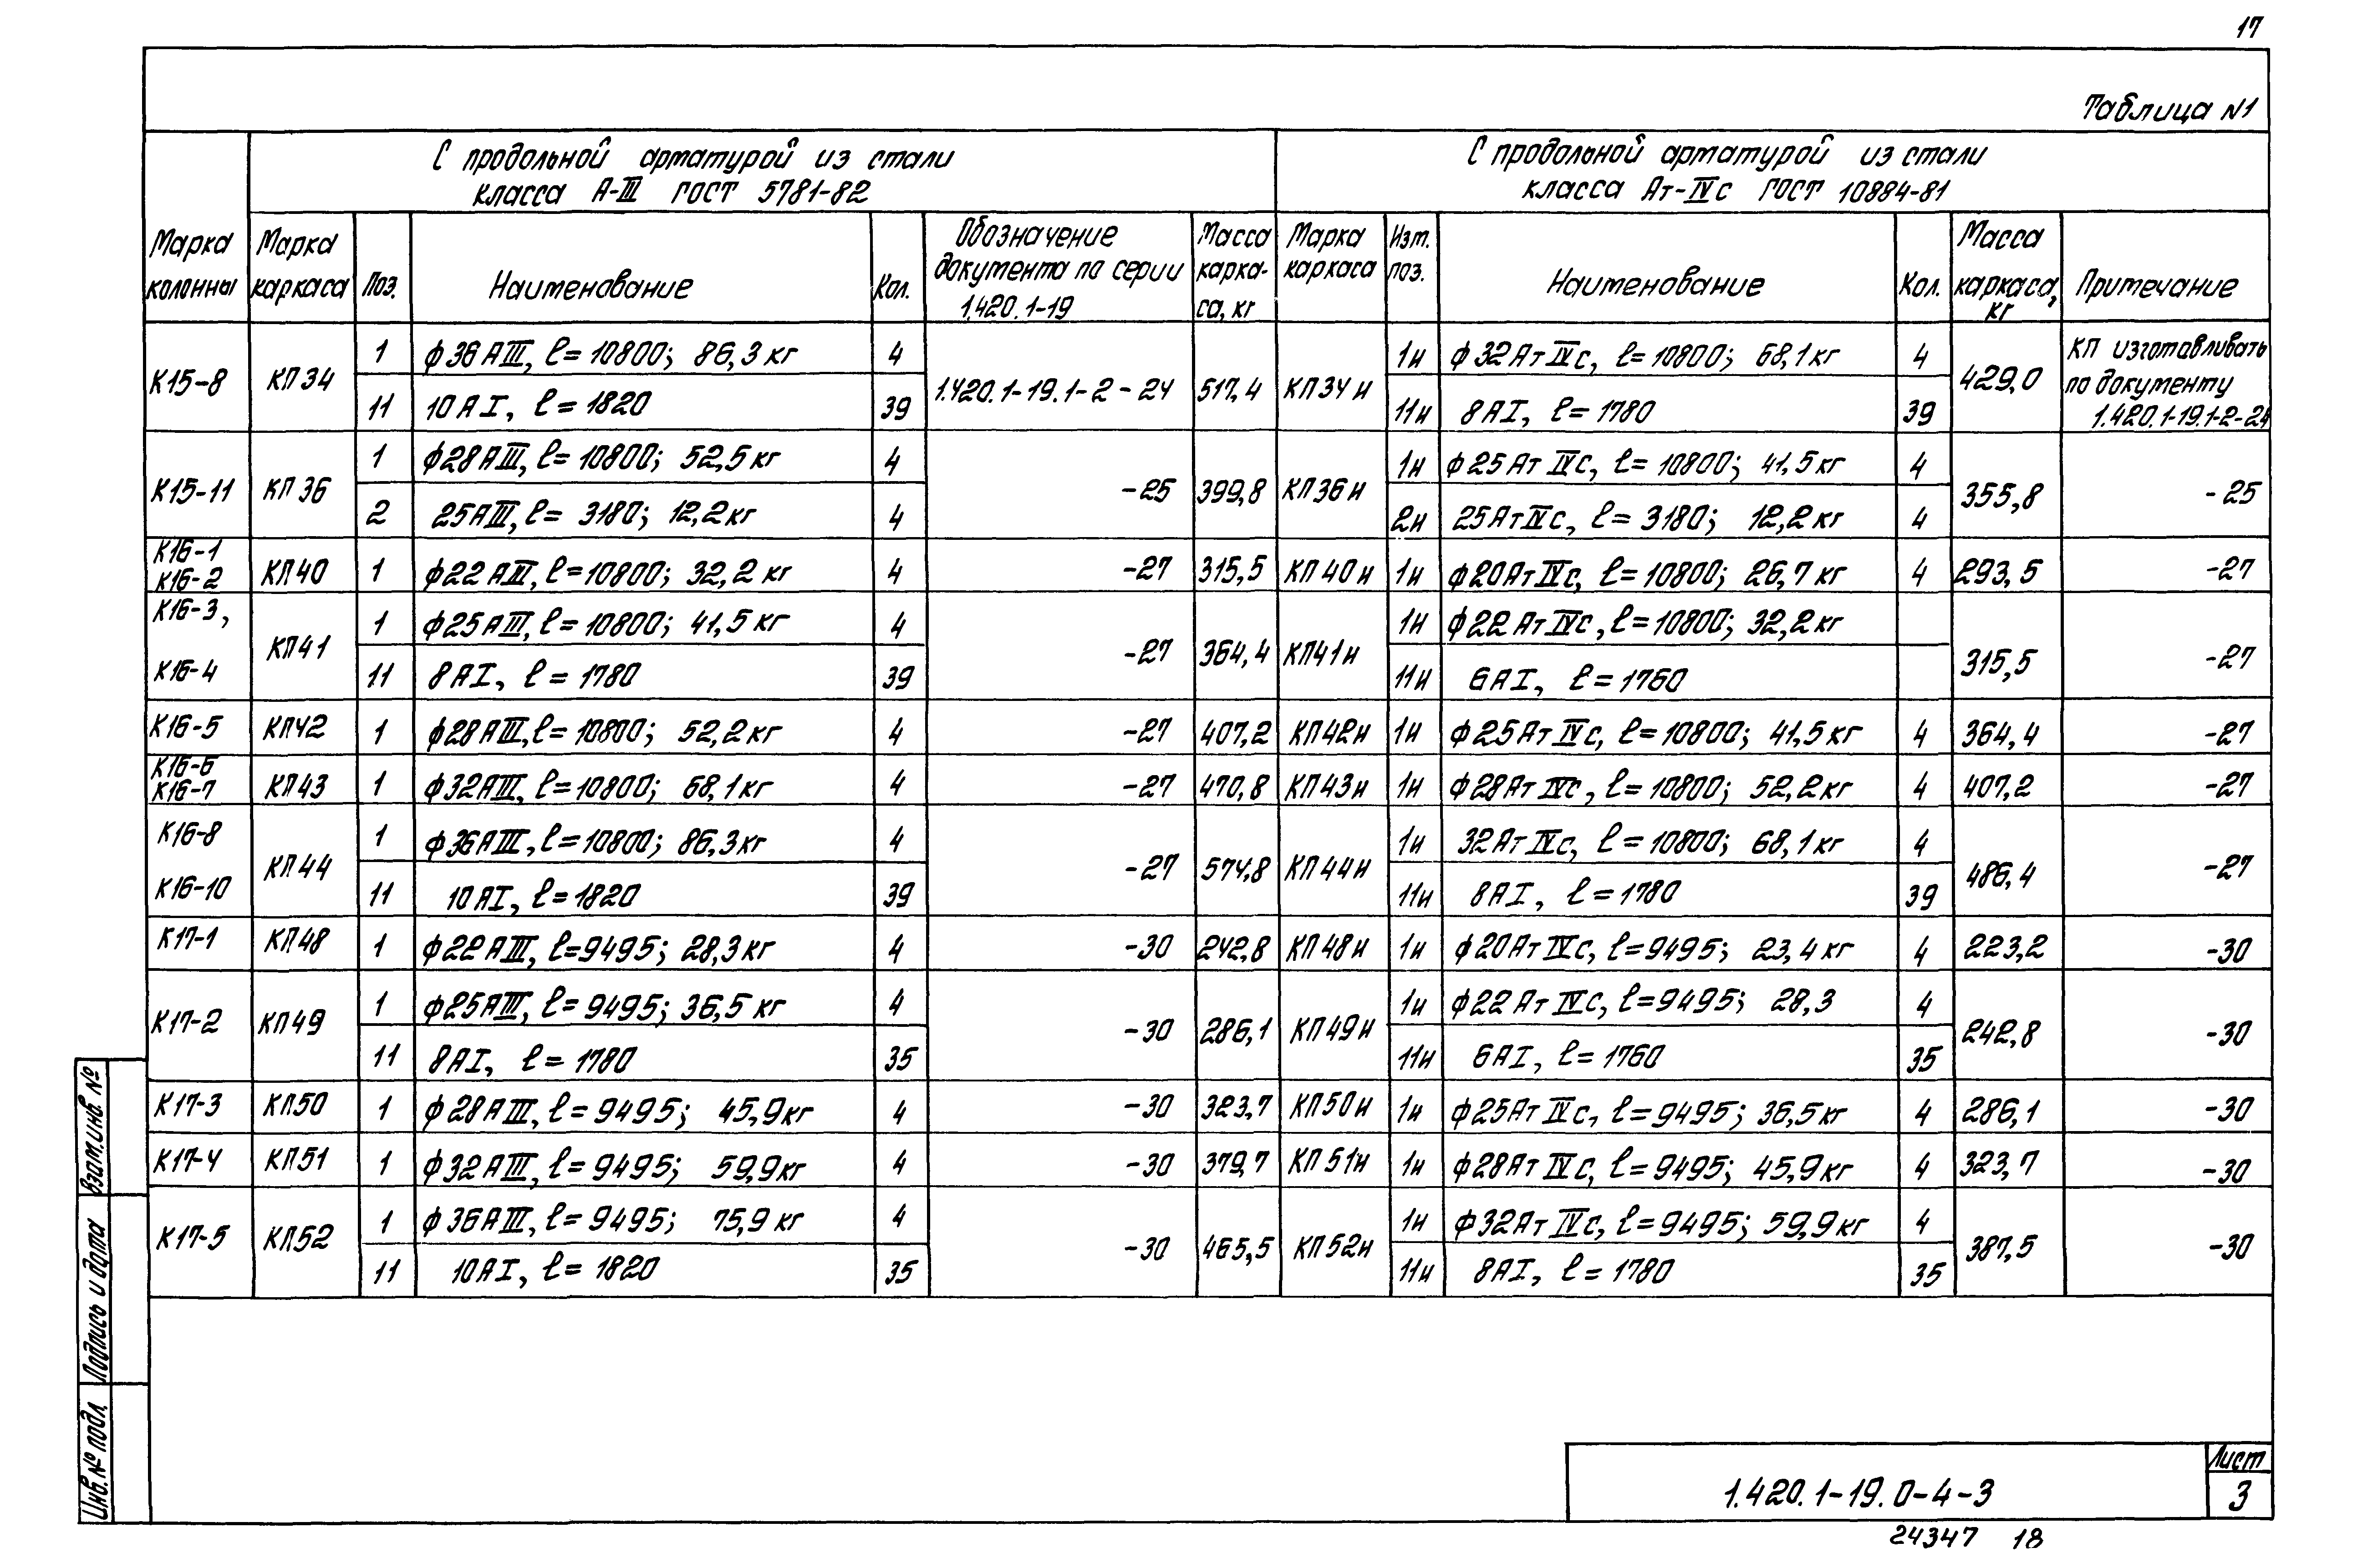 17
Таблица N1
С продольной арматурой из стали
класса А-III ГОСТ 5781-82
С продольной арматурой из стали
класса Ат-IVс ГОСТ 10884-81
Марка колонны
Марка каркаса
Поз.
Наименование
Кол.
Обозначение документа по серии 1.420.1-19
Масса карка-са, кг
Марка каркаса
Изм. поз.
Наименование
Кол.
Масса каркаса, кг
Примечание
К15-8 КП34 1 ф36АIII, ℓ=10800; 86,3кг 4 1.420.1-19.1-2-24 517,4 КП34и 1и ф32АтIVс, ℓ=10800; 68,1кг 4 429,0 КП изготавливать по документу 1.420.1-19.1-2-24
11 10АI, ℓ=1820 39 11и 8АI, ℓ=1780 39
К15-11 КП36 1 ф28АIII, ℓ=10800; 52,5кг 4 -25 399,8 КП36и 1и ф25АтIVс, ℓ=10800; 41,5кг 4 355,8 -25
2 25АIII, ℓ=3180; 12,2кг 4 2и 25АтIVс, ℓ=3180; 12,2кг 4
К16-1 К16-2 КП40 1 ф22АIII, ℓ=10800; 32,2кг 4 -27 315,5 КП40и 1и ф20АтIVс, ℓ=10800; 26,7кг 4 293,5 -27
К16-3, К16-4 КП41 1 ф25АIII, ℓ=10800; 41,5кг 4 -27 364,4 КП41и 1и ф22АтIVс, ℓ=10800; 32,2кг 315,5 -27
11 8АI, ℓ=1780 39 11и 6АI, ℓ=1760
К16-5 КП42 1 ф28АIII, ℓ=10800; 52,2кг 4 -27 407,2 КП42и 1и ф25АтIVс, ℓ=10800; 41,5кг 4 364,4 -27
К16-6 К16-7 КП43 1 ф32АIII, ℓ=10800; 68,1кг 4 -27 470,8 КП43и 1и ф28АтIVс, ℓ=10800; 52,2кг 4 407,2 -27
К16-8 К16-10 КП44 1 ф36АIII, ℓ=10800; 86,3кг 4 -27 574,8 КП44и 1и 32АтIVс, ℓ=10800; 68,1кг 4 486,4 -27
11 10АI, ℓ=1820 39 11и 8АI, ℓ=1780 39
К17-1 КП48 1 ф22АIII, ℓ=9495; 28,3кг 4 -30 242,8 КП48и 1и ф20АтIVс, ℓ=9495; 23,4кг 4 223,2 -30
К17-2 КП49 1 ф25АIII, ℓ=9495; 36,5кг 4 -30 286,1 КП49и 1и ф22АтIVс, ℓ=9495; 28,3 4 242,8 -30
11 8АI, ℓ=1780 35 11и 6АI, ℓ=1760 35
К17-3 КП50 1 ф28АIII, ℓ=9495; 45,9кг 4 -30 323,7 КП50и 1и ф25АтIVс, ℓ=9495; 36,5кг 4 286,1 -30
К17-4 КП51 1 ф32АIII, ℓ=9495; 59,9кг 4 -30 379,7 КП51и 1и ф28АтIVс, ℓ=9495; 45,9кг 4 323,7 -30
К17-5 КП52 1 ф36АIII, ℓ=9495; 75,9кг 4 -30 465,5 КП52и 1и ф32АтIVс, ℓ=9495; 59,9кг 4 387,5 -30
11 10АI, ℓ=1820 35 11и 8АI, ℓ=1780 35
Взам.инв.№
Подпись и дата
Инв.№ подл.
1.420.1-19.0-4-3
Лист
3
24347 18